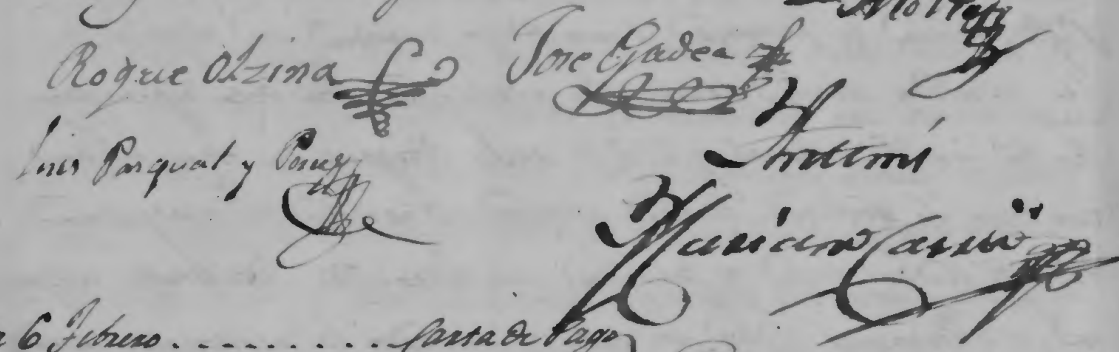 Roque Olzina
Jose Gadea
Luis Pasqual y Perez
Anttemi
Mariano Carrió
6 Febrero . . . . . . . . . . Carta de Pago